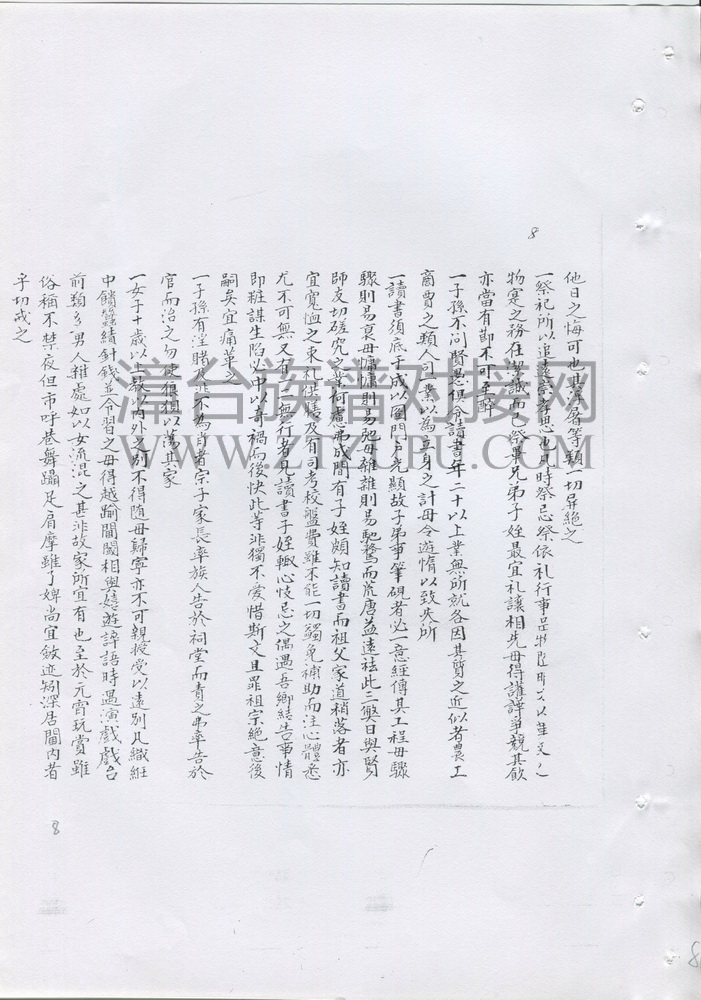 8
他日之悔可也 等類一切屏絶之
一祭祀所以追遠 也凡時祭忌祭依礼行事品物
物寔之務在潔誠而已祭畢兄弟子姪最宜礼讓相先毋得讙譁爭競其飲
亦當有節不可至醉
一子孫不问賢愚俱令讀書年二十以上業無所就各因其質之近似者農工
商賈之類人司一業以為立身之計毋令遊惰以致失所
一讀書須底于成以圖門户光顯故子弟事筆硯者必一意經傳其工程毋驟
驟則易衰毋慵慵則易弛毋雜雜則易馳騖而荒唐益遠祛此三弊日與賢
師友切磋究之業何慮弗成間有子姪頗知讀書而祖父家道稍落者亦
宜寬恤之束礼 及有司考校盤費雖不能一切蠲免補助而注心體悉
尤不可無又有一二無行者見讀書子姪輒心忮忌之偶遇吾鄉結告事情
即粧謀生陷必中以奇禍而後快此等非獨不爱惜斯文且罪祖宗絶意後
嗣矣宜痛革之
一子孫有淫賭及 不為肖者宗子家長率族人告於祠堂而責之弗率告於
官而治之勿使 以蕩其家
一女子十歲以上 以内外之别不得随母歸寧亦不可親授受以遠别凡織紝
中饋蠶績針綫並令習之毋得越踰閫閾相與嬉遊誶語時遇演戲戲台
前類多男人雜處如以女流混之甚非故家所宜有也至於元宵玩賞雖
俗稱不禁夜但市呼巷舞躡足肩摩雖了婢尚宜斂迹矧深居閫内者
乎切戒之
8
8
浩台族谱对接网
WWW.ZPZCPU.COM